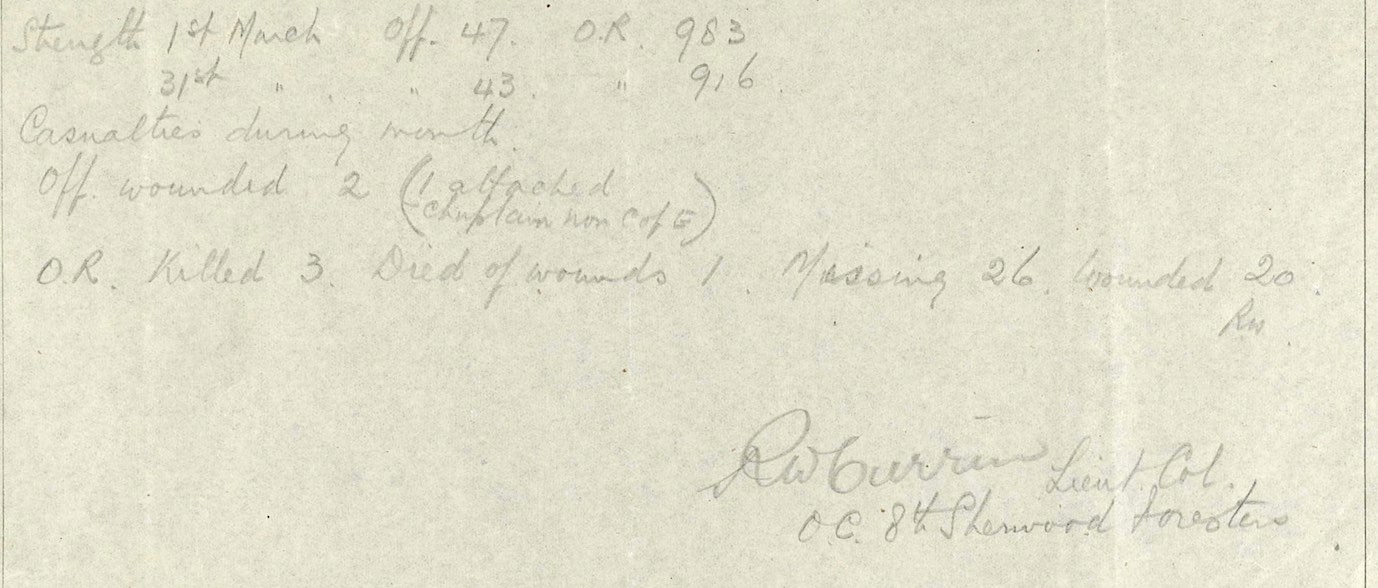 Strength 1st March Off. 47. O.R. 983
31st " " 43. " 916.
Casualties during month.
Off. wounded 2 (1 attached
Chaplain non C of E)
O.R. Killed 3. Died of wounds 1. Missing 26. Wounded 20.
RW
RW Currin Lieut. Col.
O.C. 8th Sherwood Foresters